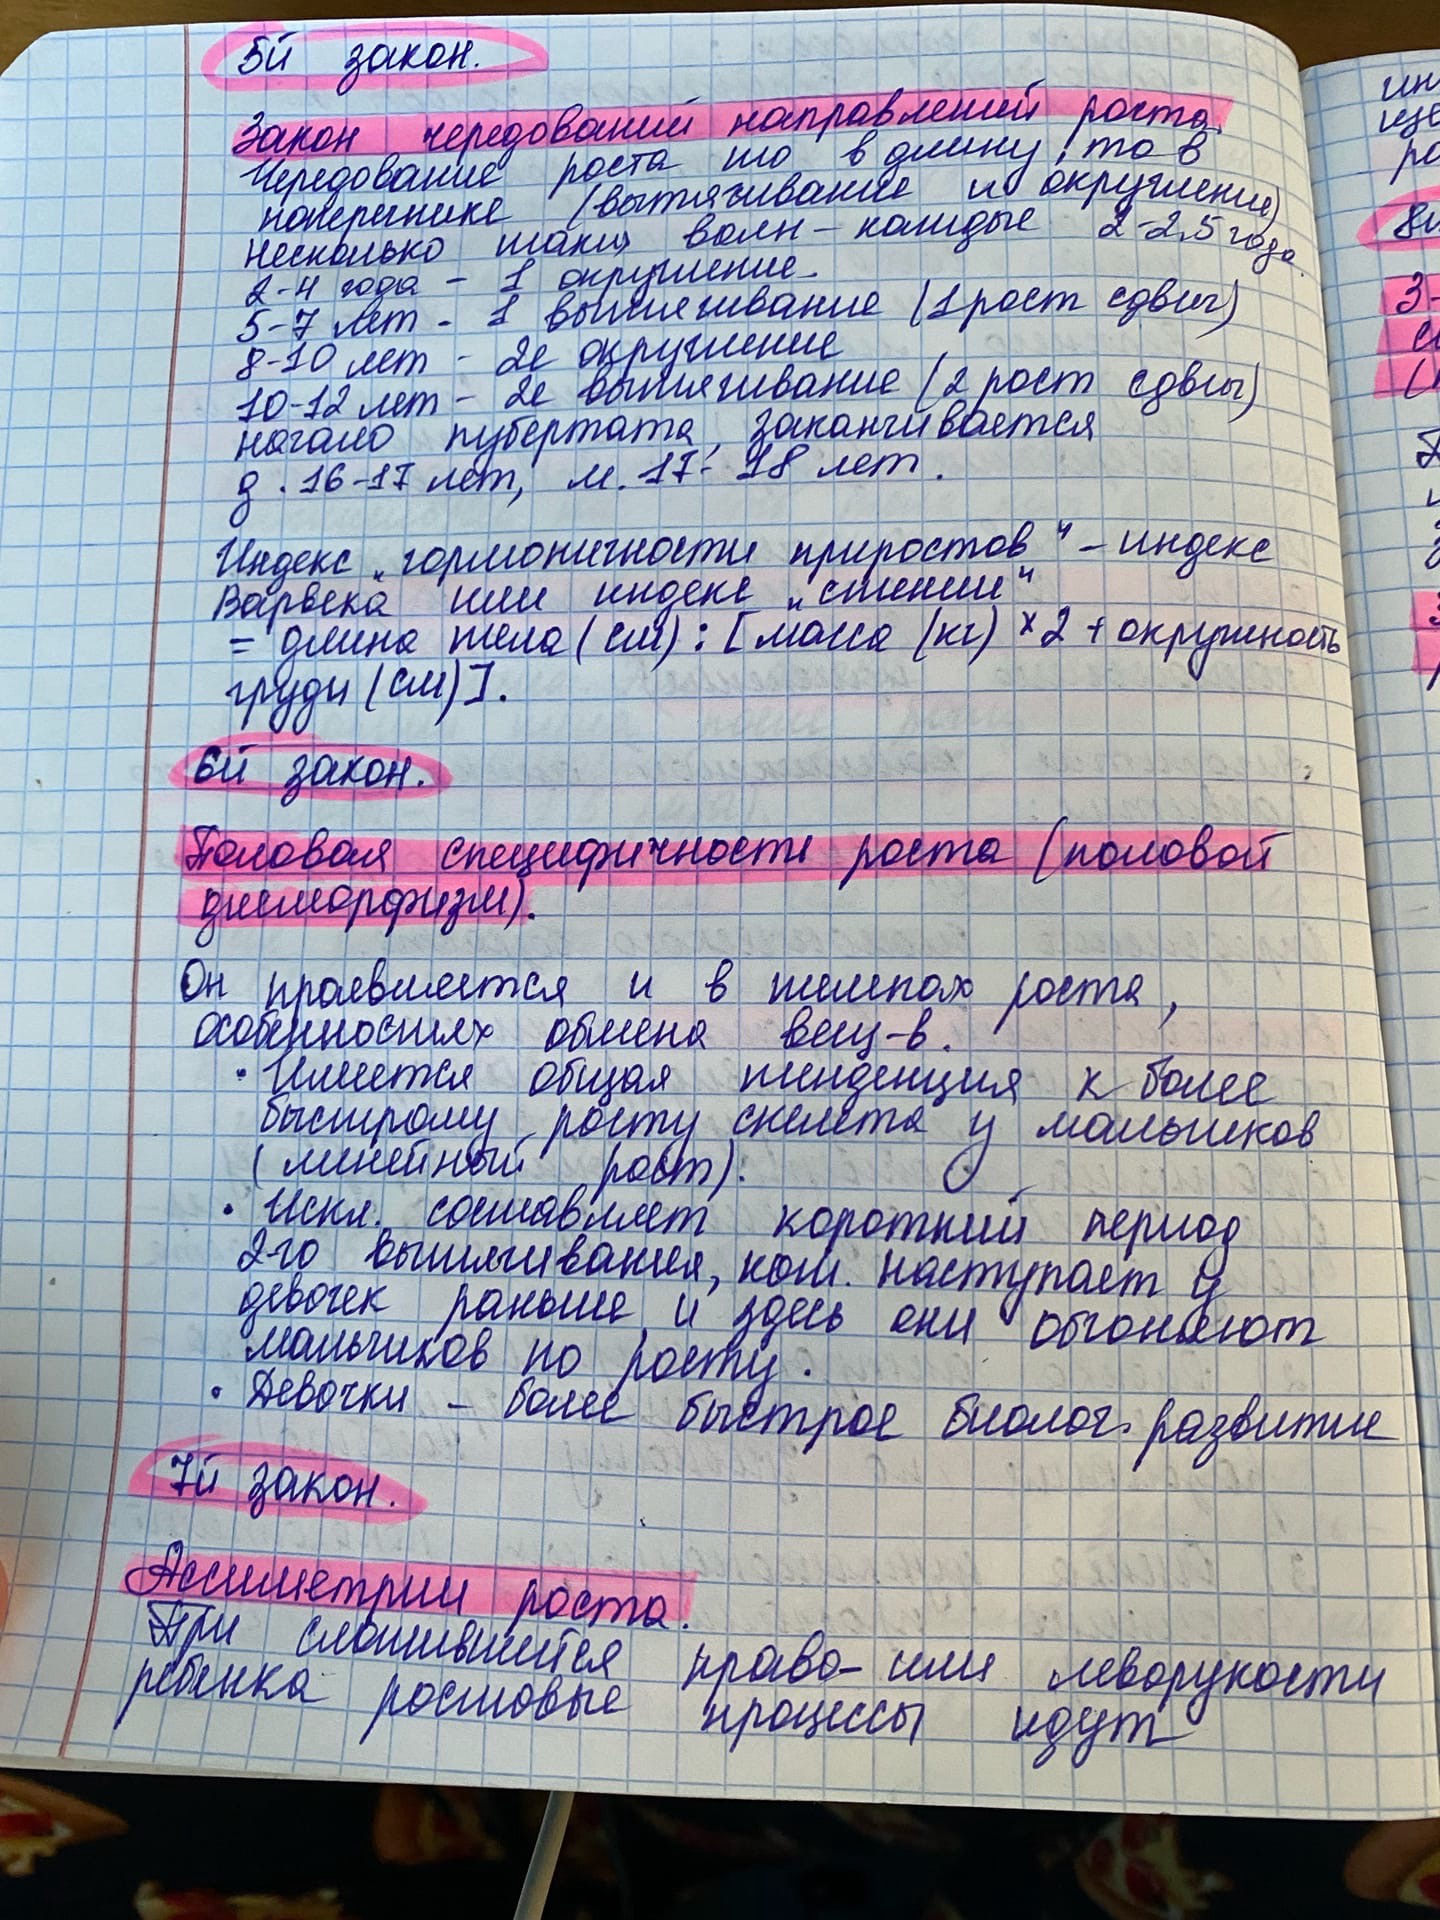 5й закон.
Закон чередований направлений роста.
Чередование роста то в длину, то в
поперечнике (вытягивание и округление)
несколько таких волн - каждые 2-2,5 года.
2-4 года - 1 округление.
5-7 лет - 1 вытягивание (1 рост сдвиг)
8-10 лет - 2е округление
10-12 лет - 2е вытягивание (2 рост сдвиг)
начало пубертата, заканчивается
д. 16-17 лет, м. 17-18 лет.
Индекс „гормоничности приростов" - индекс
Варвека или индекс „стении"
= длина тела (см) : [масса (кг) × 2 + окружность
груди (см)].
6й закон.
Половая специфичности роста (половой
диморфизм).
Он проявляется и в темпах роста,
особенностях обмена вещ-в.
· Имеется общая тенденция к более
быстрому росту скелета у мальчиков
(линейный рост).
· Искл. составляет короткий период
2-го вытягивания, кот. наступает у
девочек раньше и здесь они обгоняют
мальчиков по росту.
· Девочки - более быстрое биолог. развитие
7й закон.
Ассиметрии роста.
При сложившейся право- или леворукости
ребенка ростовые процессы идут
8й
3-